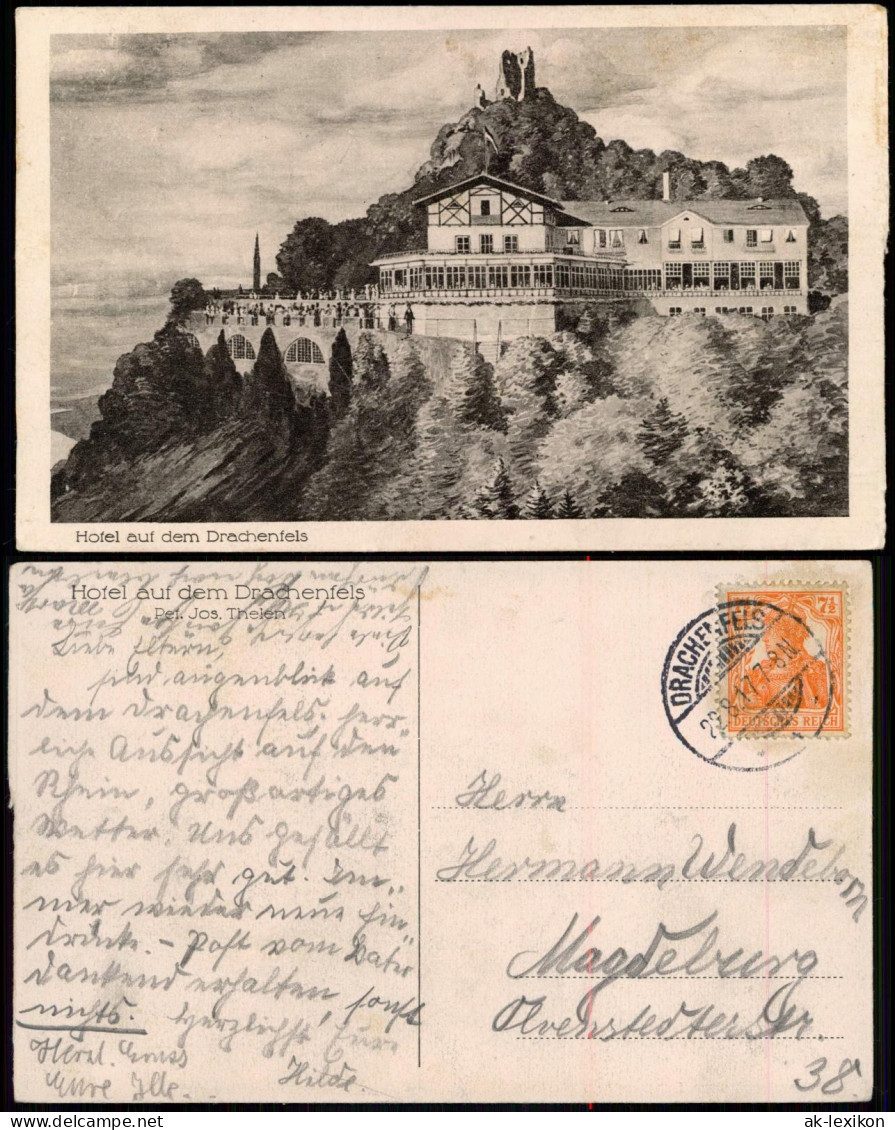 Hotel auf dem Drachenfels
Hotel auf dem Drachenfels
Pet. Jos. Thelen
Liebe Eltern,
sind augenblick auf
dem Drachenfels. herr„
liche Aussicht auf den
Rhein, großartiges
Wetter. Uns gefällt
es hier sehr gut. Im„
mer wieder neue Ein„
drücke. – Post vom Vater
dankend erhalten, sonst
nichts. Herzlichst Eure
Hilde.
Herzl. Gruss
Eure Ilse.
DRACHENFELS
22.8.17.7-8N
7½
DEUTSCHES REICH
Herrn
Hermann Wendeborn
Magdeburg
Olvenstedterstr.
38
ak-lexikon